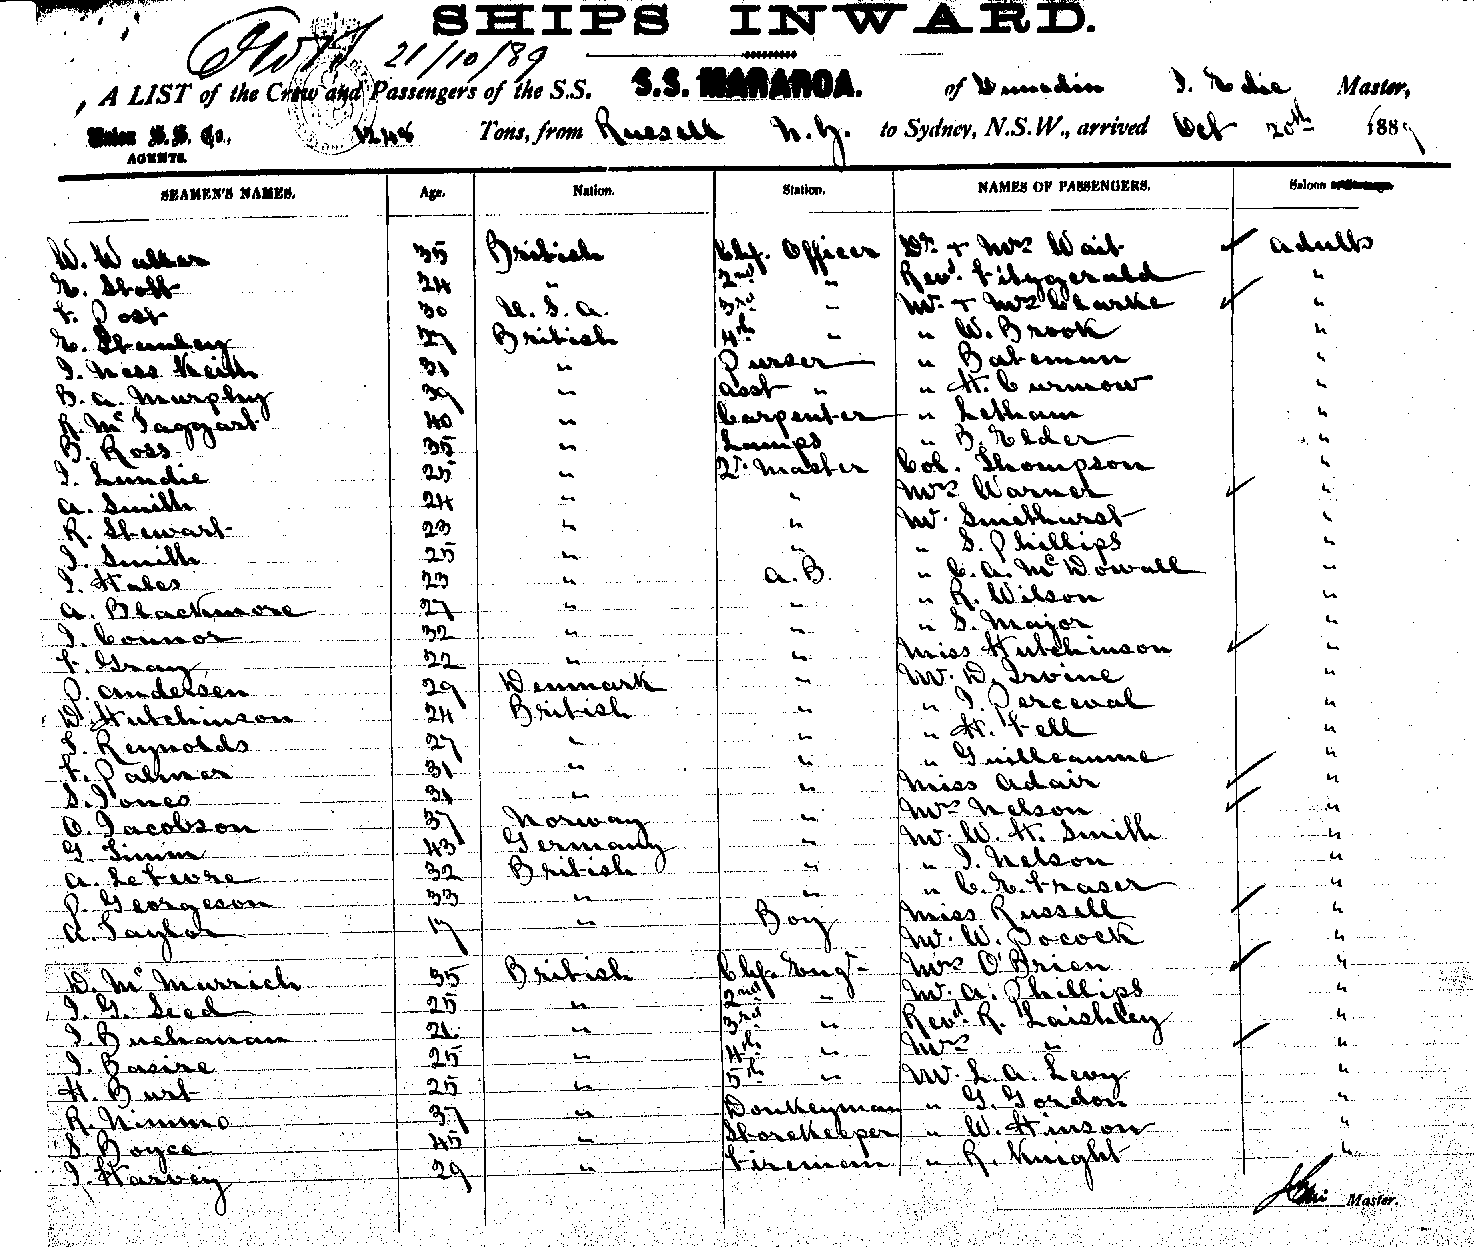 SHIPS INWARD.
21/10/89
A LIST of the Crew and Passengers of the S.S. S.S. MARAROA. of Dunedin J. Edie Master,
Union S.S. Co., 1248 Tons, from Russell N.Z. to Sydney, N.S.W., arrived Oct 20th 1889
AGENTS.
SEAMEN'S NAMES. Age. Nation. Station. NAMES OF PASSENGERS. Saloon
W. Walker 35 British Chf. Officer Dr + Mrs Wait adults
E. Stott 24 " 2nd " Revd. Fitzgerald "
F. Post 30 U.S.A. 3rd " Mr + Mrs Clarke "
E. 27 British 4th " " W. Brook "
J. Ness Keith 31 " Purser " Bateman "
B. A. Murphy 39 " Asst " " H. Curnow "
R. McTaggart 40 " Carpenter " Letham "
B. Ross 35 " Lamps " B. Elder "
J. Lundie 25 " Qr. Master Col. Thompson "
A. Smith 24 " " Mrs Warner "
R. Stewart 23 " " Mr. Smethurst "
J. Smith 25 " " " S. Phillips "
J. Hales 23 " A.B. " C. A. McDowall "
A. Blackmore 27 " " " R. Wilson "
J. Connor 32 " " " S. Major "
F. Gray 22 " " Miss Hutchinson "
P. Andersen 29 Denmark " Mr. D. Irvine "
D. Hutchinson 24 British " " J. Perceval "
S. Reynolds 27 " " " H. Fell "
F. Palmer 31 " " " Guilleaume "
S. Jones 31 " " Miss Adair "
O. Jacobson 37 Norway " Mrs Nelson "
G. Timm 43 Germany " Mr. W. H. Smith "
A. LeFevre 32 British " " J. Nelson "
P. Georgeson 33 " " " C. E. Fraser "
A. Taylor 17 " Boy Miss Russell "
Mr. W. Pocock "
D. McMurrich 35 British Chf. Engr. Mrs O'Brien "
J. G. Seed 25 " 2nd " Mr. A. Phillips "
J. Buchanan 21 " 3rd " Revd. R. Laishley "
J. Basire 25 " 4th " Mrs " "
H. Burt 25 " 5th " Mr. L. A. Levy "
R. Nimmo 37 " Donkeyman " G. Gordon "
S. Boyce 45 " Storekeeper " W. Hinson "
J. Harvey 29 " Fireman " R. Knight "
Master.